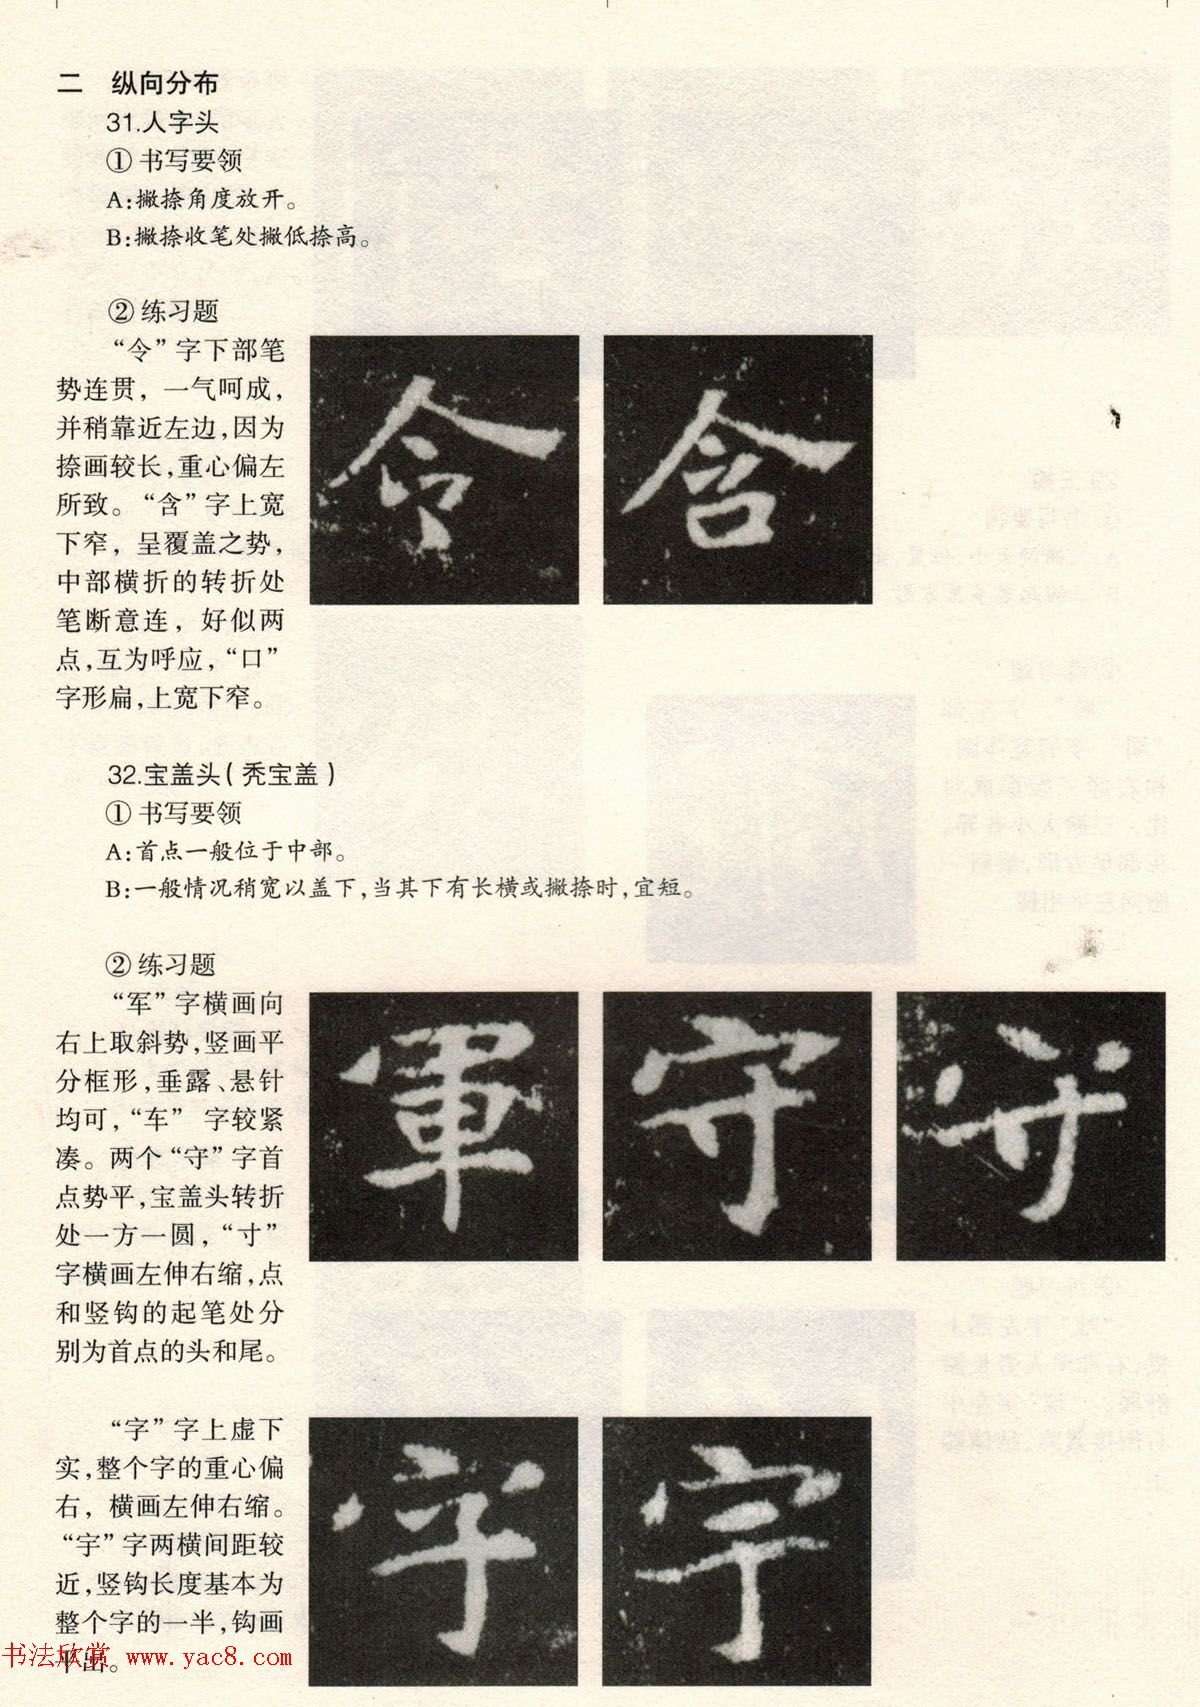 二 纵向分布
31.人字头
① 书写要领
A:撇捺角度放开。
B:撇捺收笔处撇低捺高。
② 练习题
“令”字下部笔
势连贯，一气呵成，
并稍靠近左边，因为
捺画较长，重心偏左
所致。“含”字上宽
下窄，呈覆盖之势，
中部横折的转折处
笔断意连，好似两
点，互为呼应，“口”
字形扁，上宽下窄。
令 含
32.宝盖头(秃宝盖)
① 书写要领
A:首点一般位于中部。
B:一般情况稍宽以盖下，当其下有长横或撇捺时，宜短。
② 练习题
“军”字横画向
右上取斜势，竖画平
分框形，垂露、悬针
均可，“车”字较紧
凑。两个“守”字首
点势平，宝盖头转折
处一方一圆，“寸”
字横画左伸右缩，点
和竖钩的起笔处分
别为首点的头和尾。
軍 守 守
“字”字上虚下
实，整个字的重心偏
右，横画左伸右缩。
“宇”字两横间距较
近，竖钩长度基本为
整个字的一半，钩画
平出。
字 宇
书法欣赏 www.yac8.com